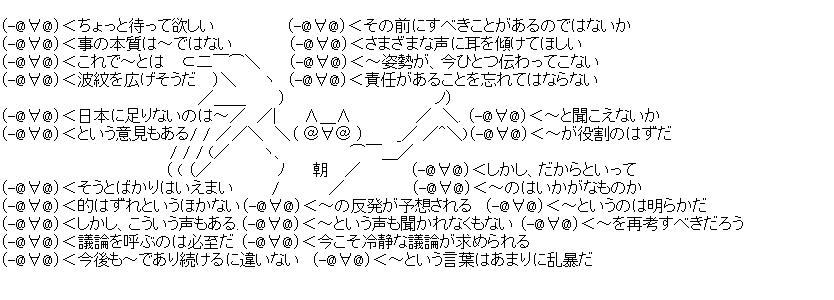 (-@∀@)＜ちょっと待って欲しい (-@∀@)＜その前にすべきことがあるのではないか
(-@∀@)＜事の本質は～ではない (-@∀@)＜さまざまな声に耳を傾けてほしい
(-@∀@)＜これで～とは (-@∀@)＜～姿勢が、今ひとつ伝わってこない
(-@∀@)＜波紋を広げそうだ (-@∀@)＜責任があることを忘れてはならない
(-@∀@)＜日本に足りないのは～ (-@∀@)＜～と聞こえないか
(-@∀@)＜という意見もある (＠∀@) (-@∀@)＜～が役割のはずだ
朝 (-@∀@)＜しかし、だからといって
(-@∀@)＜そうとばかりはいえまい (-@∀@)＜～のはいかがなものか
(-@∀@)＜的はずれというほかない (-@∀@)＜～の反発が予想される (-@∀@)＜～というのは明らかだ
(-@∀@)＜しかし、こういう声もある. (-@∀@)＜～という声も聞かれなくもない (-@∀@)＜～を再考すべきだろう
(-@∀@)＜議論を呼ぶのは必至だ (-@∀@)＜今こそ冷静な議論が求められる
(-@∀@)＜今後も～であり続けるに違いない (-@∀@)＜～という言葉はあまりに乱暴だ